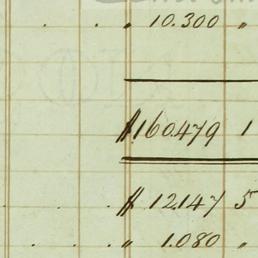 " 10.300 "
$160.479 1
$ 12.147 5
" 1.080 "